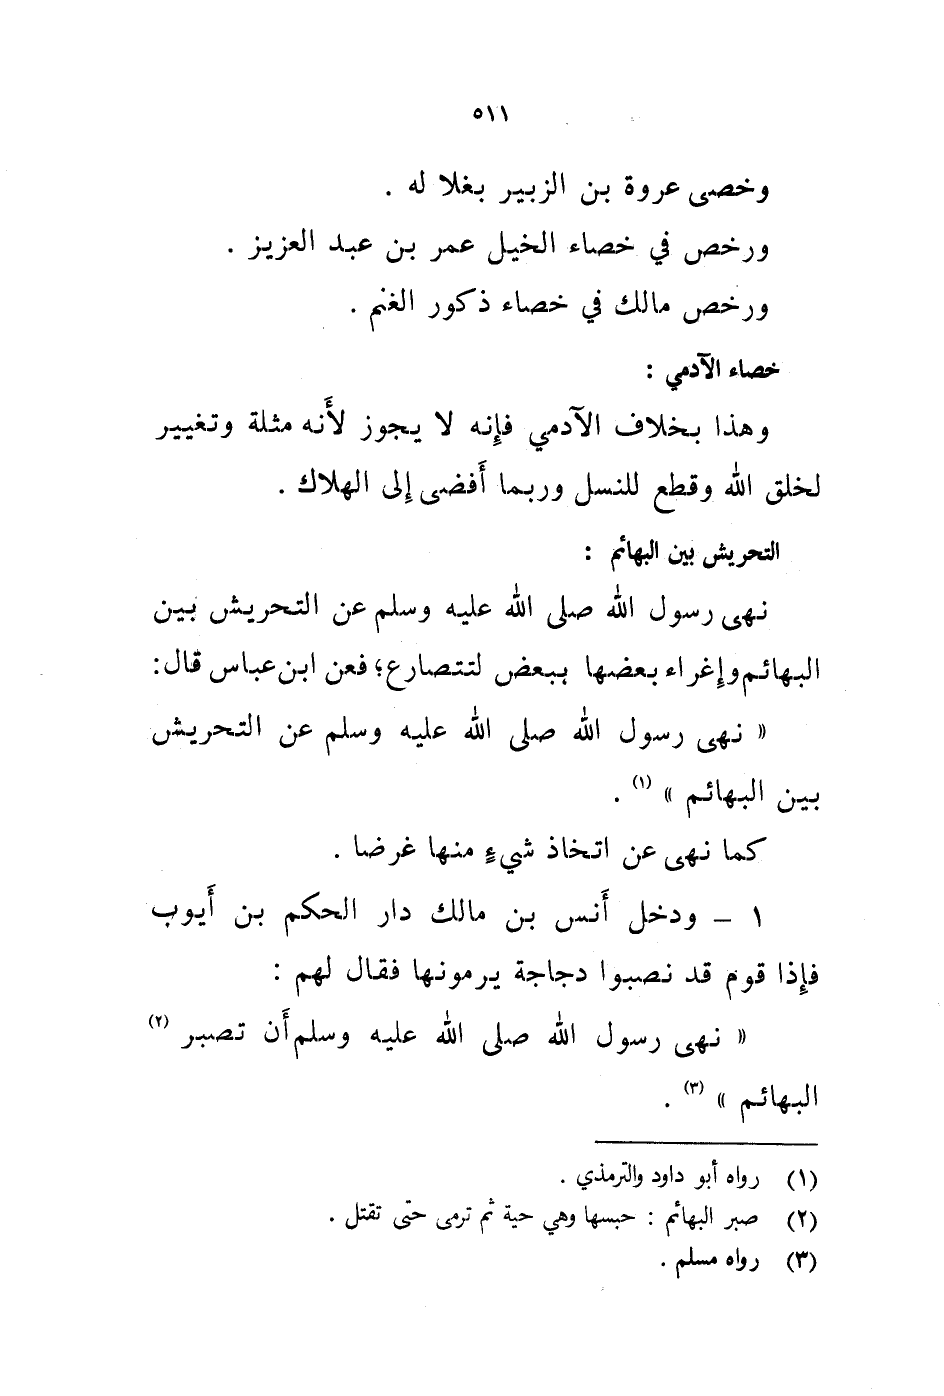 ٥١١
وخصى عروة بن الزبير بغلا له .
ورخص في خصاء الخيل عمر بن عبد العزيز .
ورخص مالك في خصاء ذكور الغنم .
خصاء الآدمي :
وهذا بخلاف الآدمي فإنه لا يجوز لأَنه مثلة وتغيير
لخلق الله وقطع للنسل وربما أَفضى إلى الهلاك .
التحريش بين البهائم :
نهى رسول الله صلى الله عليه وسلم عن التحريش بين
البهائم وإغراء بعضها ببعض لتتصارع؛ فعن ابن عباس قال:
« نهى رسول الله صلى الله عليه وسلم عن التحريش
بين البهائم » (١) .
كما نهى عن اتخاذ شيءٍ منها غرضا .
١ ــ ودخل أَنس بن مالك دار الحكم بن أَيوب
فإذا قوم قد نصبوا دجاجة يرمونها فقال لهم :
« نهى رسول الله صلى الله عليه وسلم أَن تصبر (٢)
البهائم » (٣) .
(١) رواه أبو داود والترمذي .
(٢) صبر البهائم : حبسها وهي حية ثم ترمى حتى تقتل .
(٣) رواه مسلم .